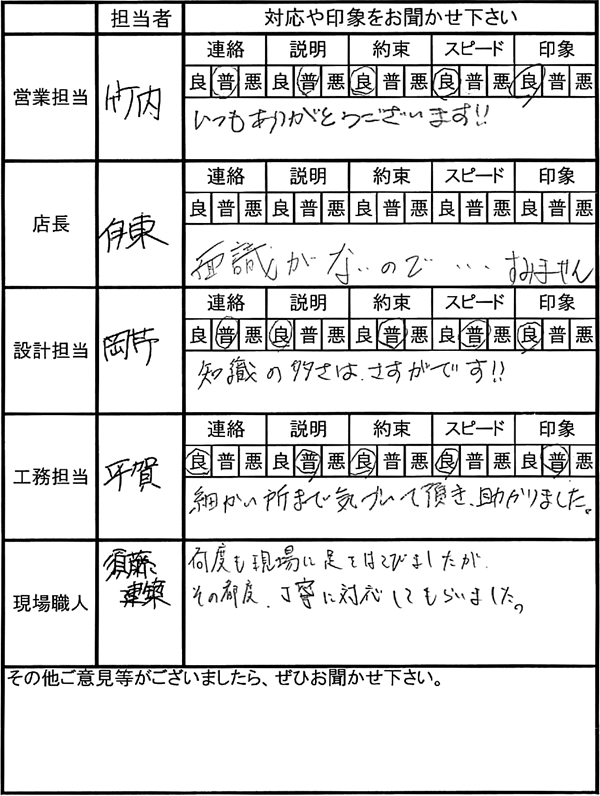 担当者 対応や印象をお聞かせ下さい
連絡 説明 約束 スピード 印象
営業担当 竹内 良 普 悪 良 普 悪 良 普 悪 良 普 悪 良 普 悪
いつもありがとうございます!!
連絡 説明 約束 スピード 印象
店長 伊東 良 普 悪 良 普 悪 良 普 悪 良 普 悪 良 普 悪
面識がないので… すみません
連絡 説明 約束 スピード 印象
設計担当 岡 良 普 悪 良 普 悪 良 普 悪 良 普 悪 良 普 悪
知識の多さは、さすがです!!
連絡 説明 約束 スピード 印象
工務担当 平賀 良 普 悪 良 普 悪 良 普 悪 良 普 悪 良 普 悪
細かい所まで気づいて頂き、助かりました。
現場職人 須藤建築
何度も現場に足をはこびましたが、
その都度、丁寧に対応してもらいました。
その他ご意見等がございましたら、ぜひお聞かせ下さい。